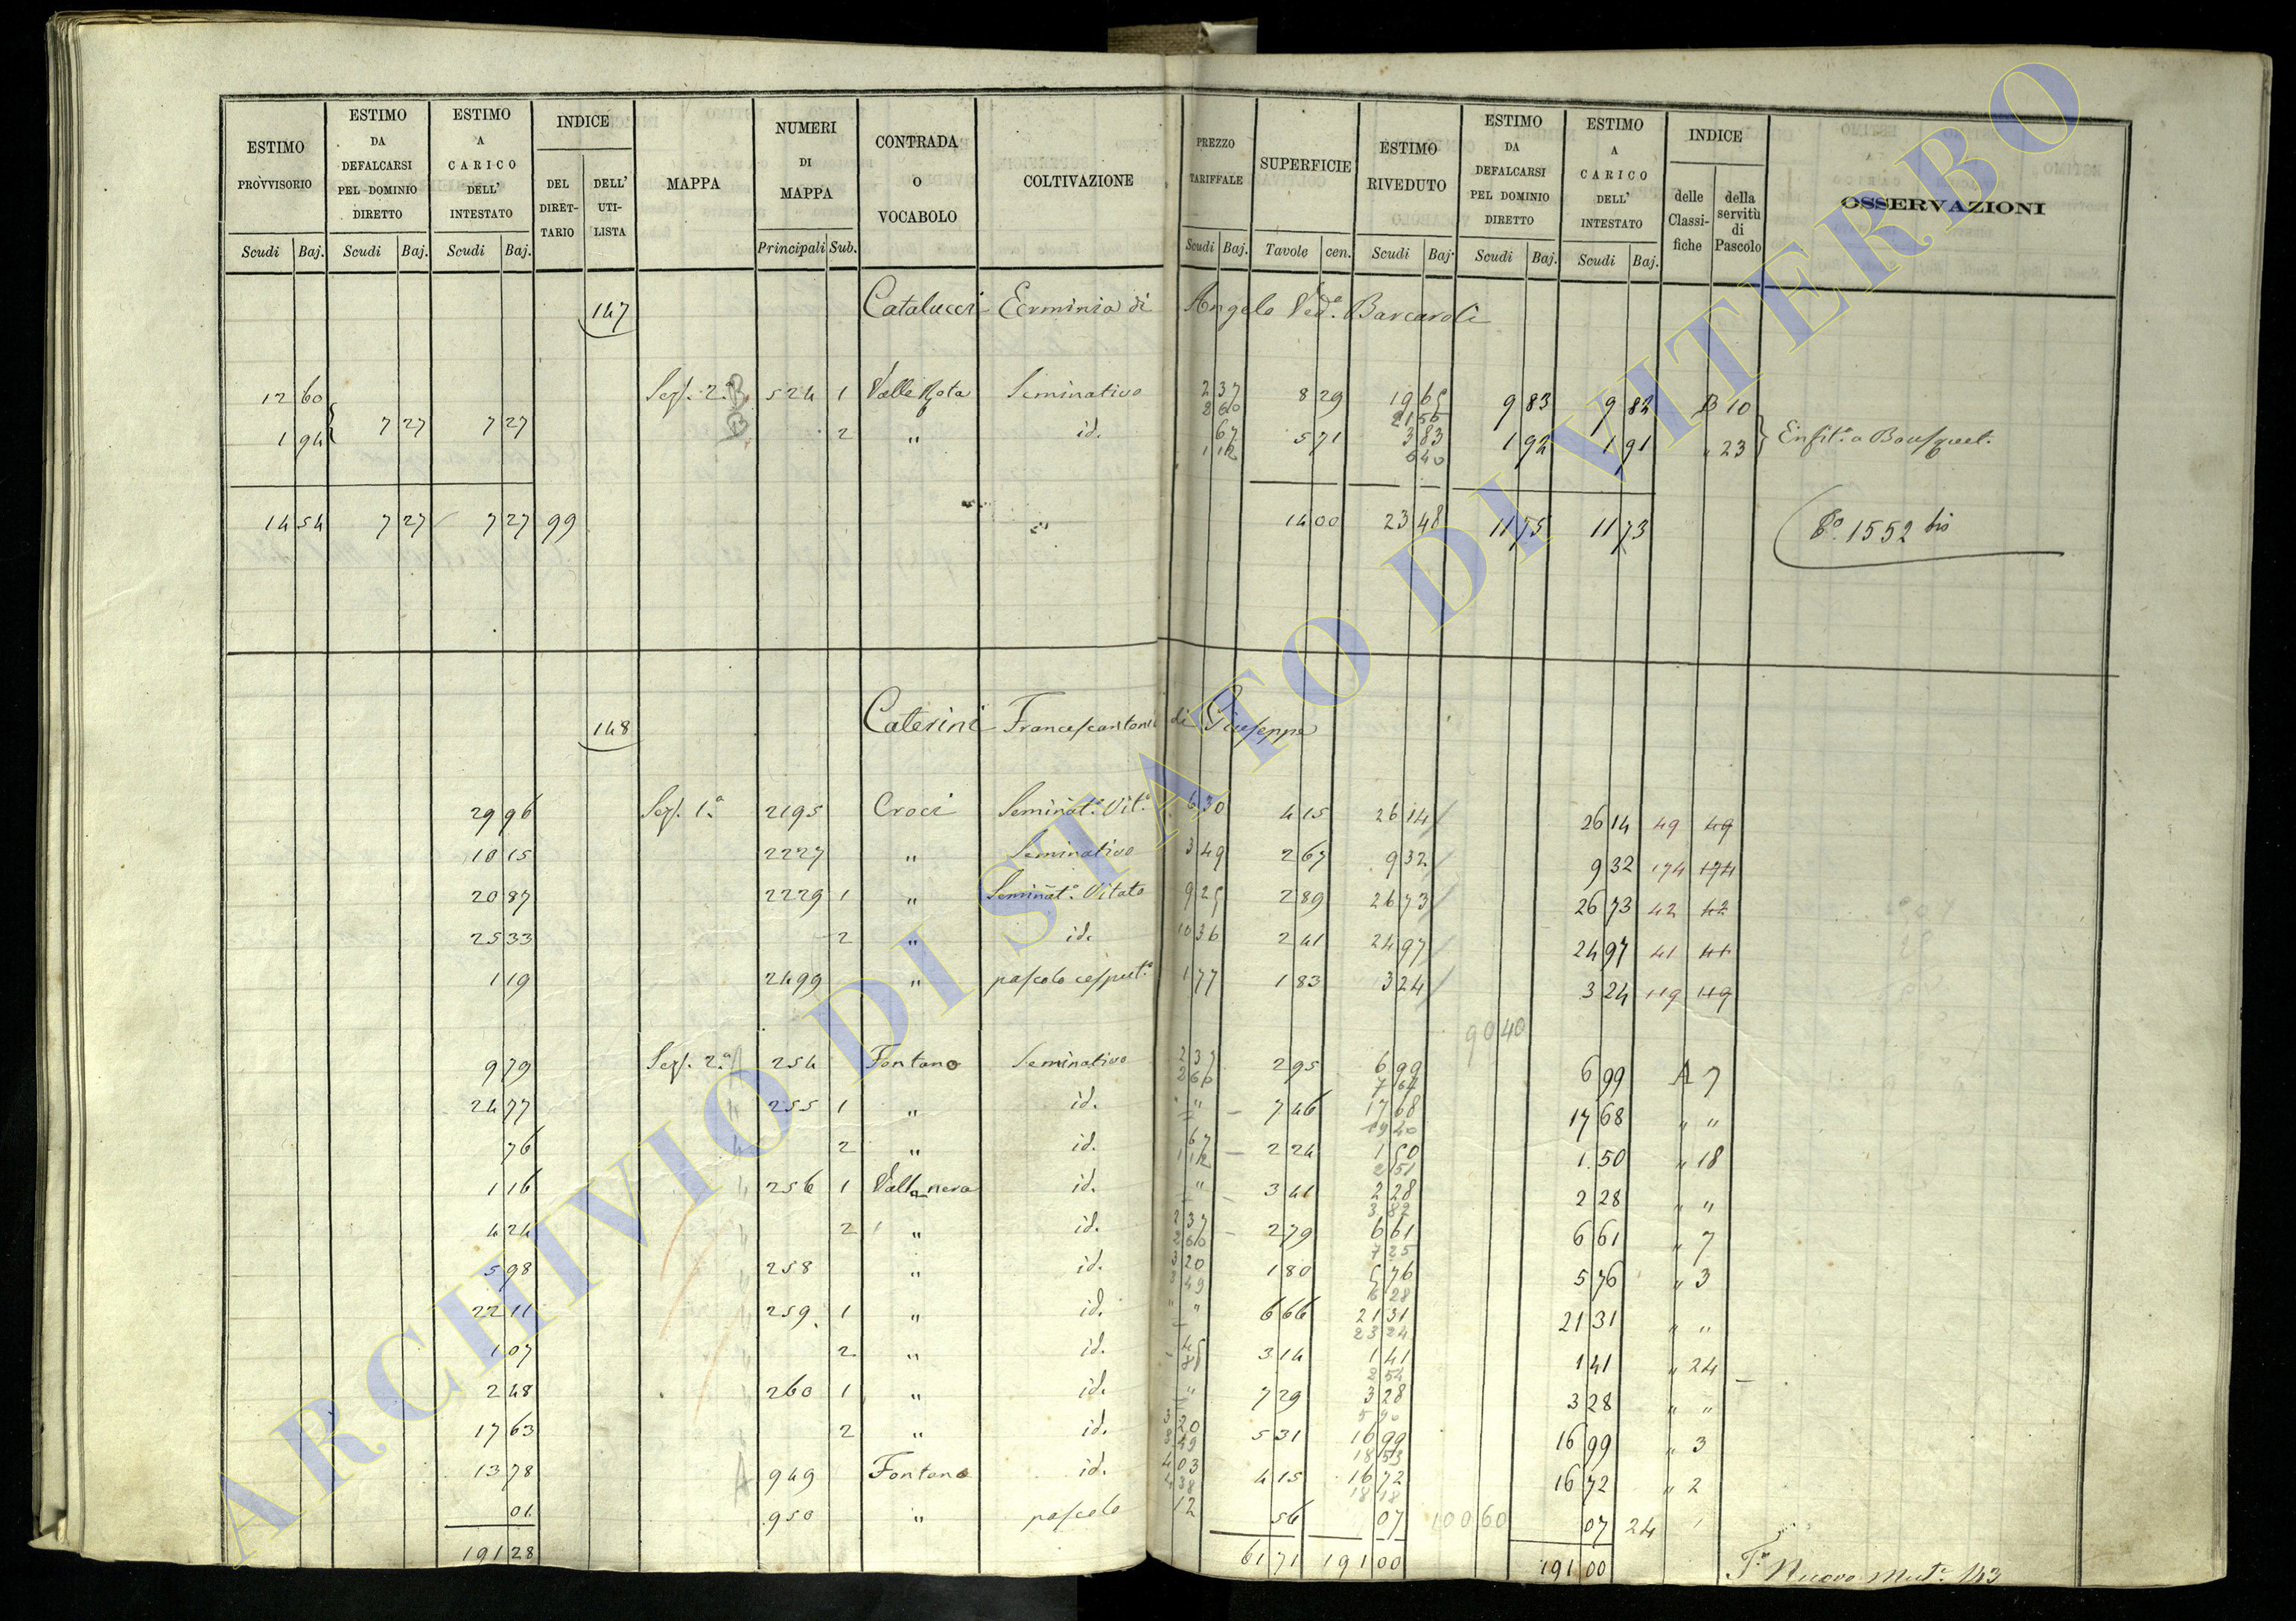 ESTIMO PROVVISORIO | ESTIMO DA DEFALCARSI PEL DOMINIO DIRETTO | ESTIMO A CARICO DELL' INTESTATO | INDICE | MAPPA | NUMERI DI MAPPA | CONTRADA O VOCABOLO | COLTIVAZIONE | PREZZO TARIFFALE | SUPERFICIE | ESTIMO RIVEDUTO | ESTIMO DA DEFALCARSI PEL DOMINIO DIRETTO | ESTIMO A CARICO DELL' INTESTATO | INDICE | OSSERVAZIONI
DEL DIRETTARIO | DELL' UTILISTA | delle Classifiche | della servitù di Pascolo
Scudi | Baj. | Scudi | Baj. | Scudi | Baj. | Principali | Sub. | Scudi | Baj. | Tavole | cen. | Scudi | Baj. | Scudi | Baj. | Scudi | Baj.
147 Catalucci Erminia di Angelo Ved.ª Barcaroli
12 60 Sez. 2.ª B 524 1 Valle Rota Seminativo 2 37 8 29 19 65 9 83 9 82 B 10
2 60 21 55
7 27 7 27
1 94 2 " id. 67 5 71 3 83 1 92 1 91 " 23
1 12 6 40
14 54 7 27 7 27 99 " 14 00 23 48 11 75 11 73 1552 bis
148 Caterini Francescantonio di Giuseppe
29 96 Sez. 1.ª 2195 Croci Seminat.º Vit.º 6 30 4 15 26 14 26 14 49 49
10 15 2227 " Seminativo 3 49 2 67 9 32 9 32 174 174
20 87 2229 1 " Seminat.º Vitato 9 25 2 89 26 73 26 73 42 42
25 33 2 " id. 10 36 2 41 24 97 24 97 41 41
1 19 2499 " pascolo cesput.º 1 77 1 83 3 24 3 24 119 119
90 40
9 79 Sez. 2.ª A 254 Fontano Seminativo 2 37 2 95 6 99 6 99 A 7
2 60 7 67
24 77 " 255 1 " id. " " 7 46 17 68 17 68 " "
19 40
76 " 2 " id. 67 2 24 1 50 1 50 " 18
1 12 2 51
1 16 " 256 1 Valle nera id. " 3 41 2 28 2 28 " "
3 82
4 24 " 2 " id. 2 37 2 79 6 61 6 61 " 7
2 60 7 25
5 98 " 258 " id. 3 20 1 80 5 76 5 76 " 3
3 49 6 28
22 11 " 259 1 " id. " " 6 66 21 31 21 31 " "
23 24
1 07 " 2 " id. 45 3 14 1 41 1 41 " 24
81 2 54
2 48 " 260 1 " id. " 7 29 3 28 3 28 " "
5 90
17 63 2 " id. 3 20 5 31 16 99 16 99 " 3
3 49 18 53
13 78 A 949 Fontano id. 4 03 4 15 16 72 16 72 " 2
4 38 18 18
01 950 " pascolo 12 56 07 100 60 07 24
191 28 61 71 191 00 191 00 Nuovo Mut.ª 143
ARCHIVIO DI STATO DI VITERBO